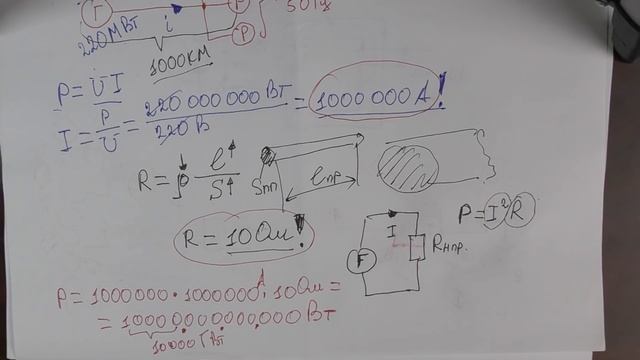 Г
50 Гц
220МВт
i
Р
1000 КМ
P = U I
I = P/U = 220 000 000 Вт / 220 В = 1000 000 А!
R = ρ l/S
Sпп
lпр
P = I² R
R = 10 Ом!
I
Rнпр.
F
P = 1000000 · 1000000 А · 10 Ом =
= 10000.000.000.000 Вт
10000 ГВт